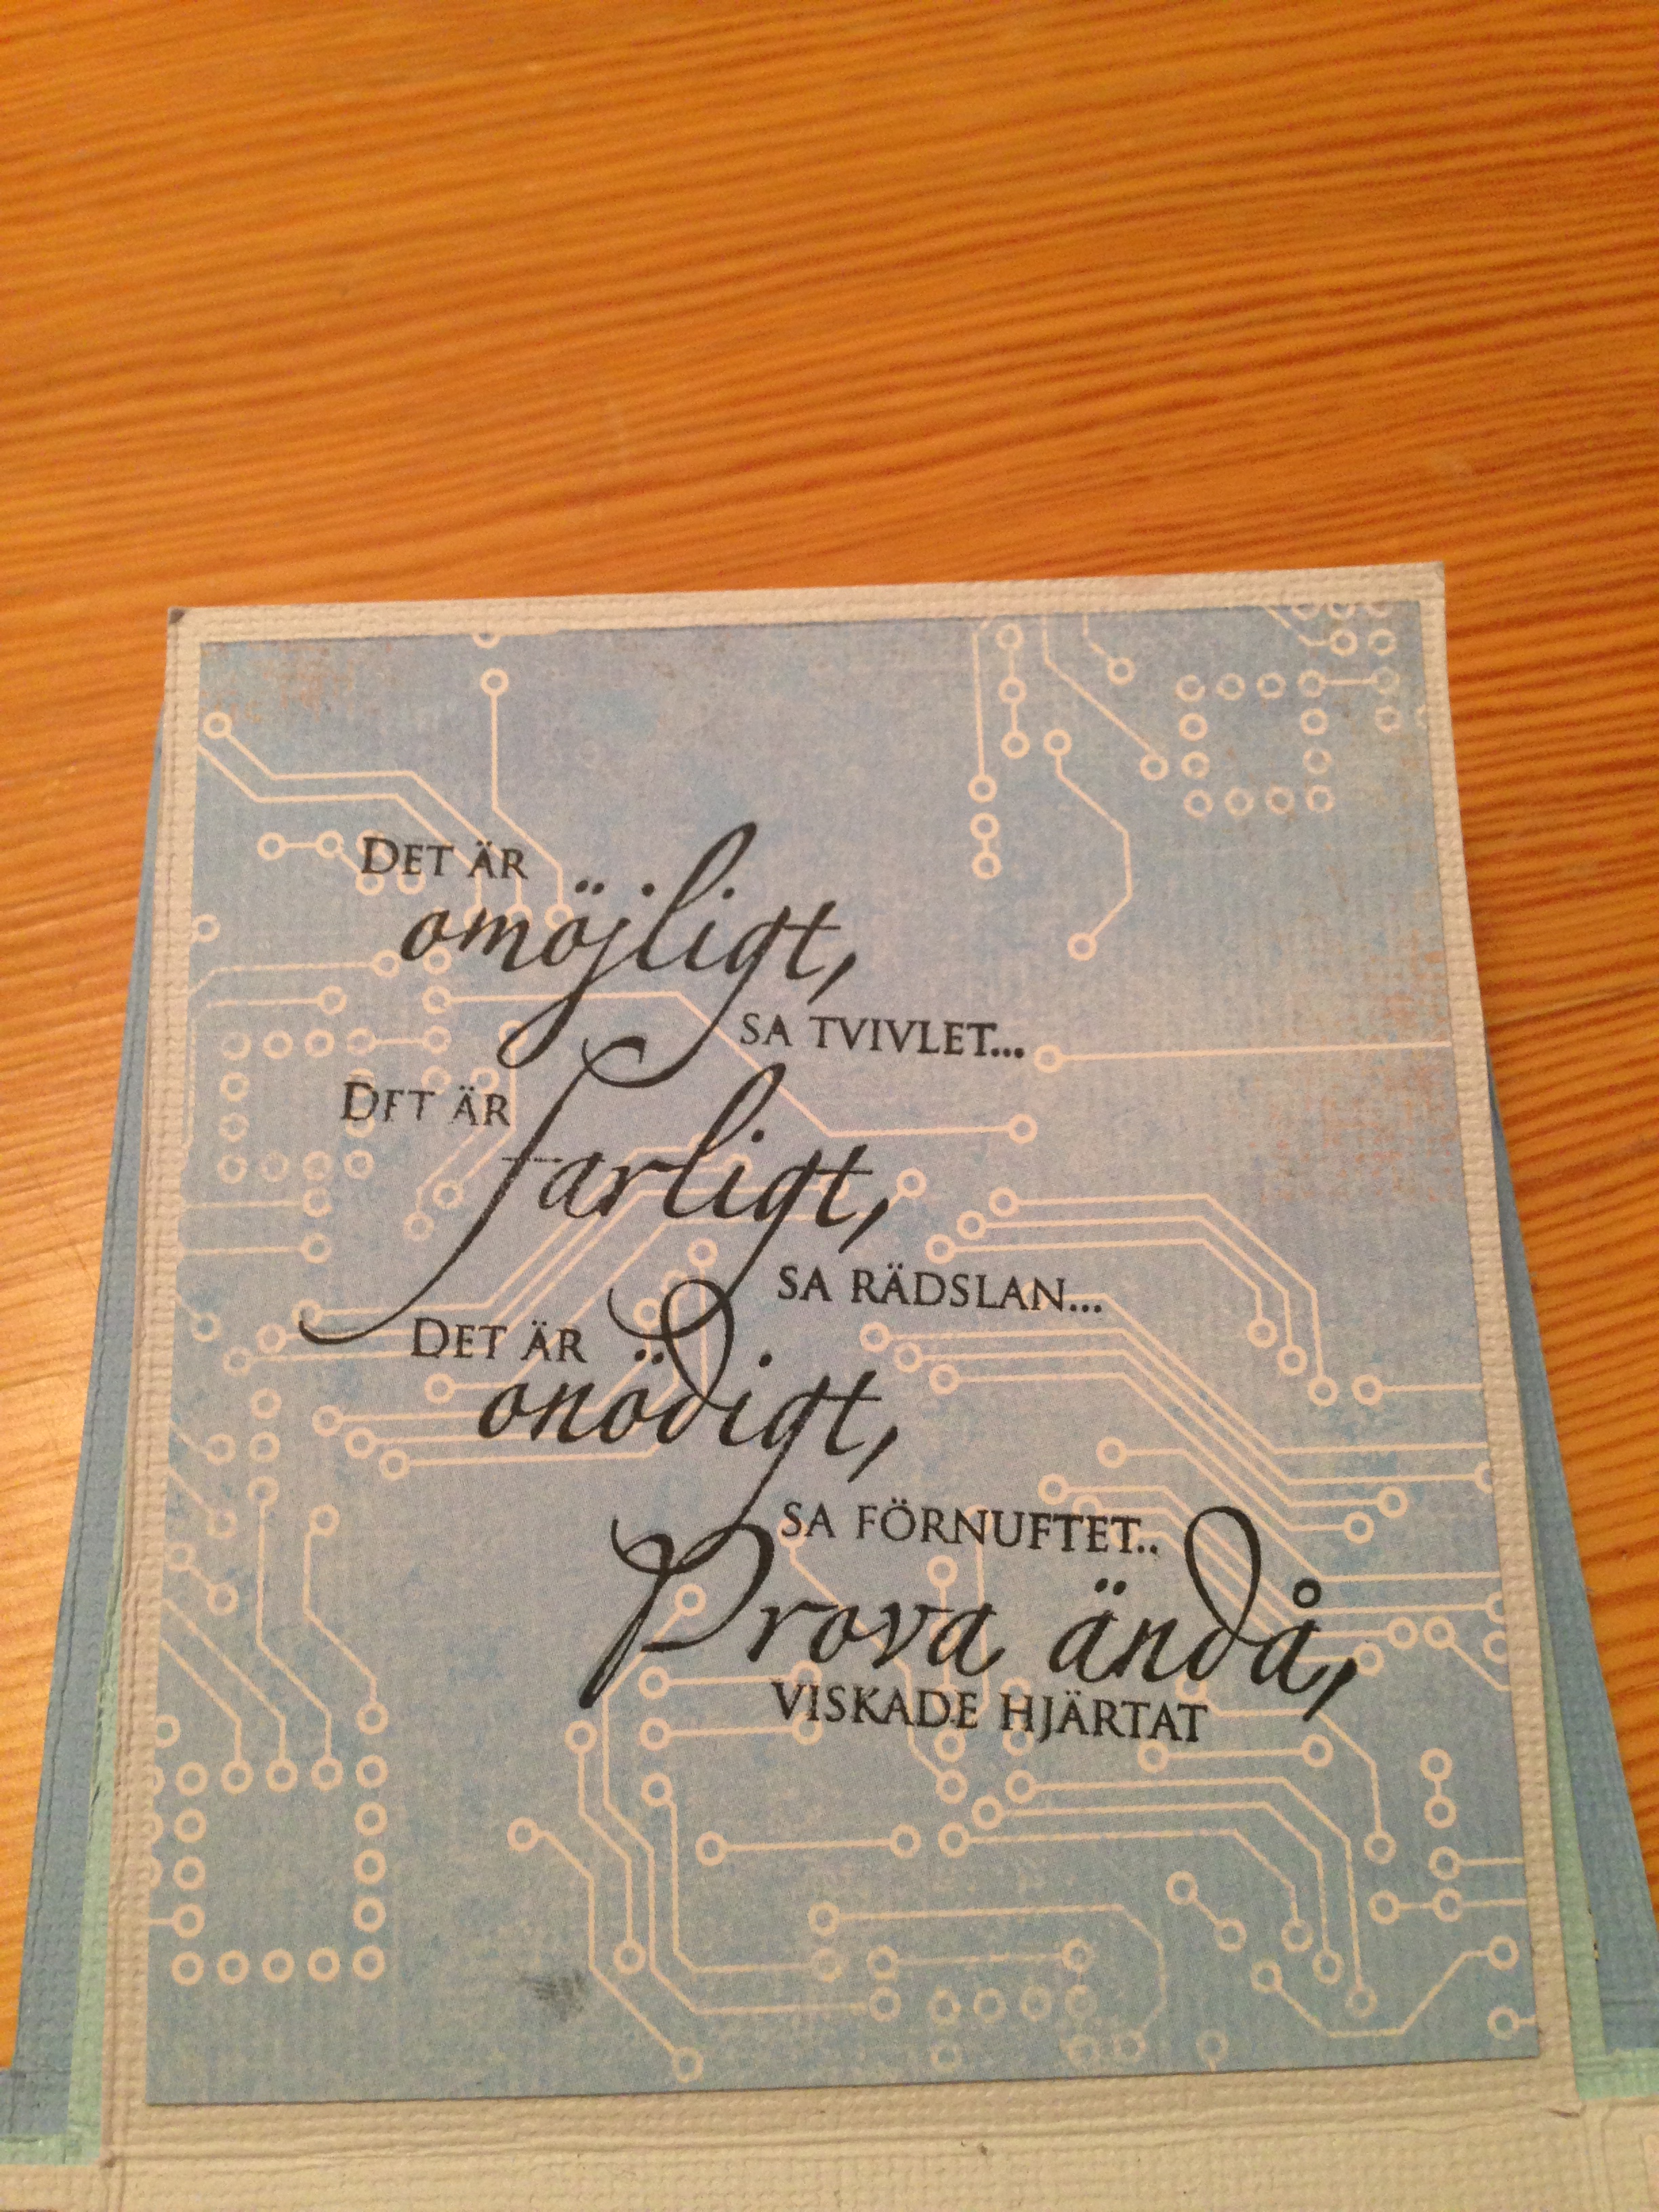 DET ÄR
omöjligt,
SA TVIVLET...
DET ÄR
farligt,
SA RÄDSLAN...
DET ÄR
onödigt,
SA FÖRNUFTET..
Prova ändå,
VISKADE HJÄRTAT